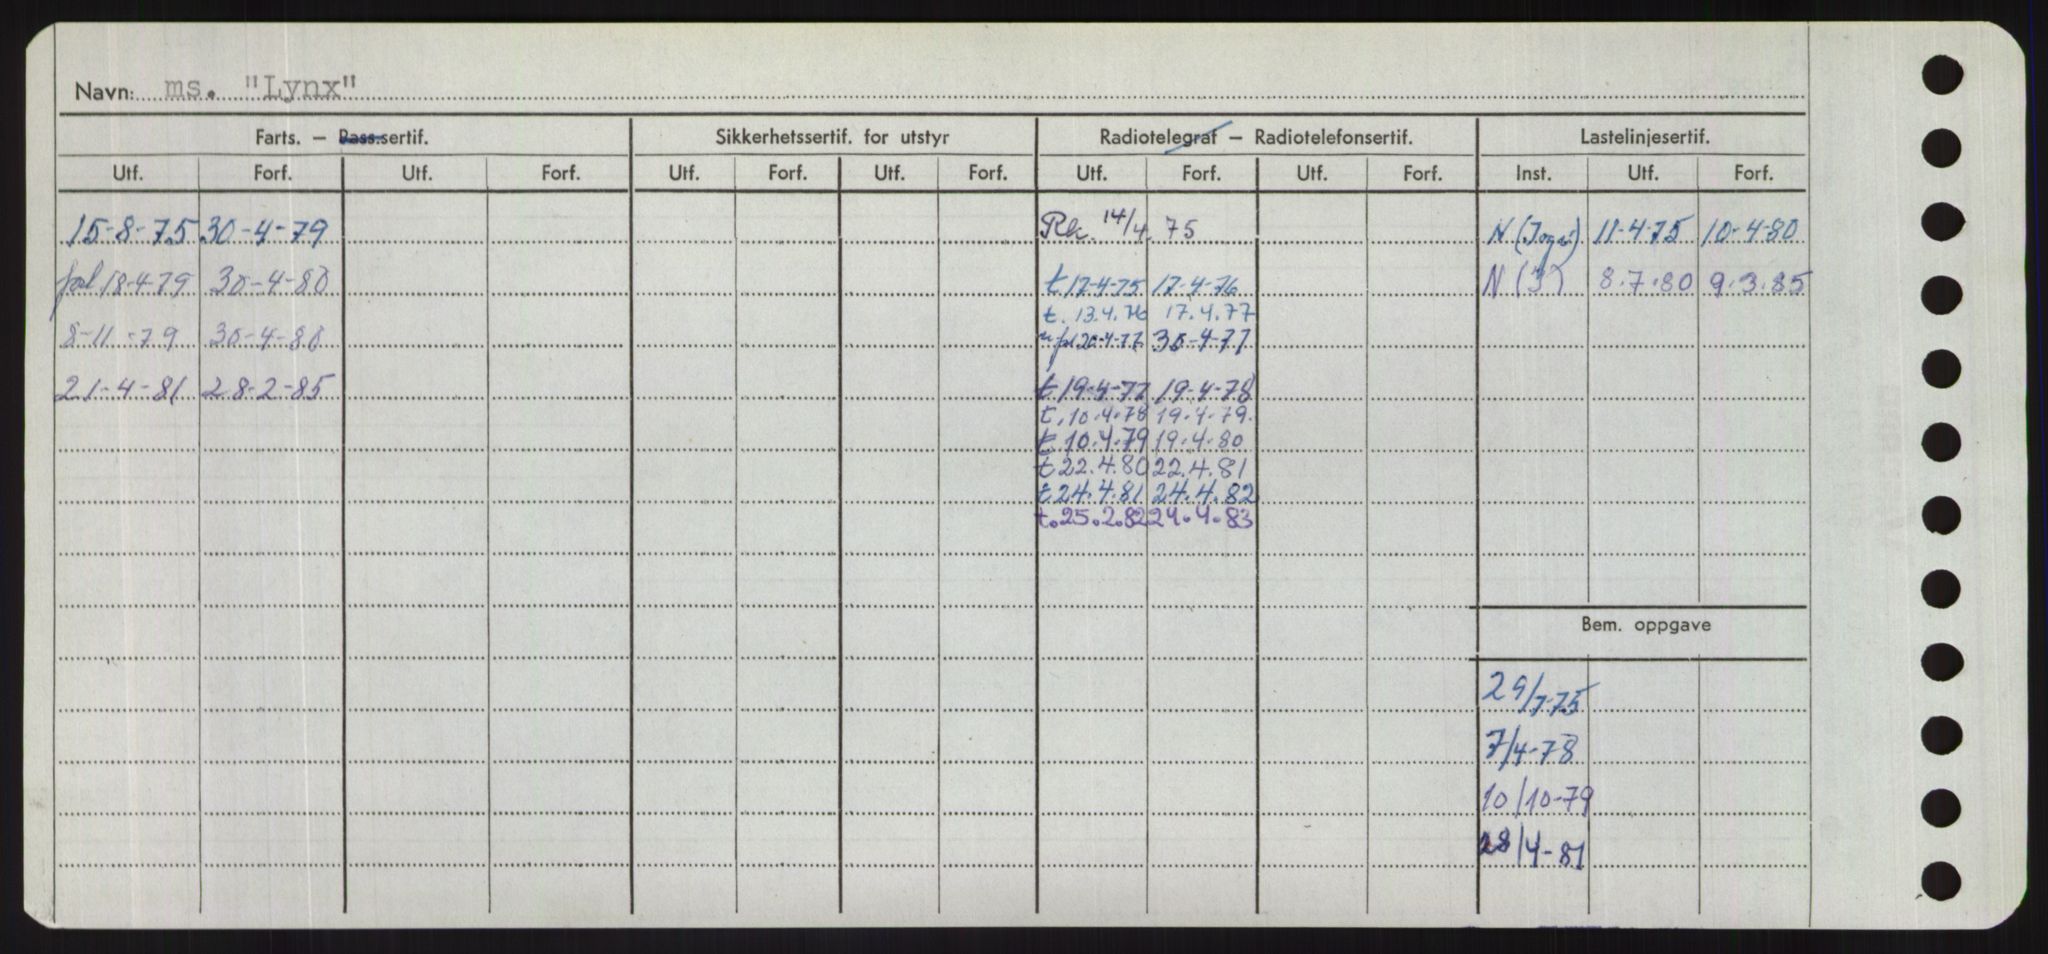 Navn: ms. "Lynx"
Farts. — Pass.sertif. Sikkerhetssertif. for utstyr Radiotelegraf — Radiotelefonsertif. Lastelinjesertif.
Utf. Forf. Utf. Forf. Utf. Forf. Utf. Forf. Utf. Forf. Utf. Forf. Inst. Utf. Forf.
15-8-75 30-4-79 Rk. 14/4 75 N 11-4-75 10-4-80
18-4-79 30-4-80 t.17-4-75 17-4-76 N (J) 8.7.80 9.3.85
t. 13.4.76 17.4.77
8-11-79 30-4-80 20-4-77 30-4-77
21-4-81 28-2-85 t 19-4-77 19-4-78
t. 10.4.78 19.4.79.
t 10.4.79 19.4.80
t 22.4.80 22.4.81
t 24.4.81 24.4.82
t. 25.2.82 24.4.83
Bem. oppgave
29/7-75
7/4-78
10/10-79
28/4-81